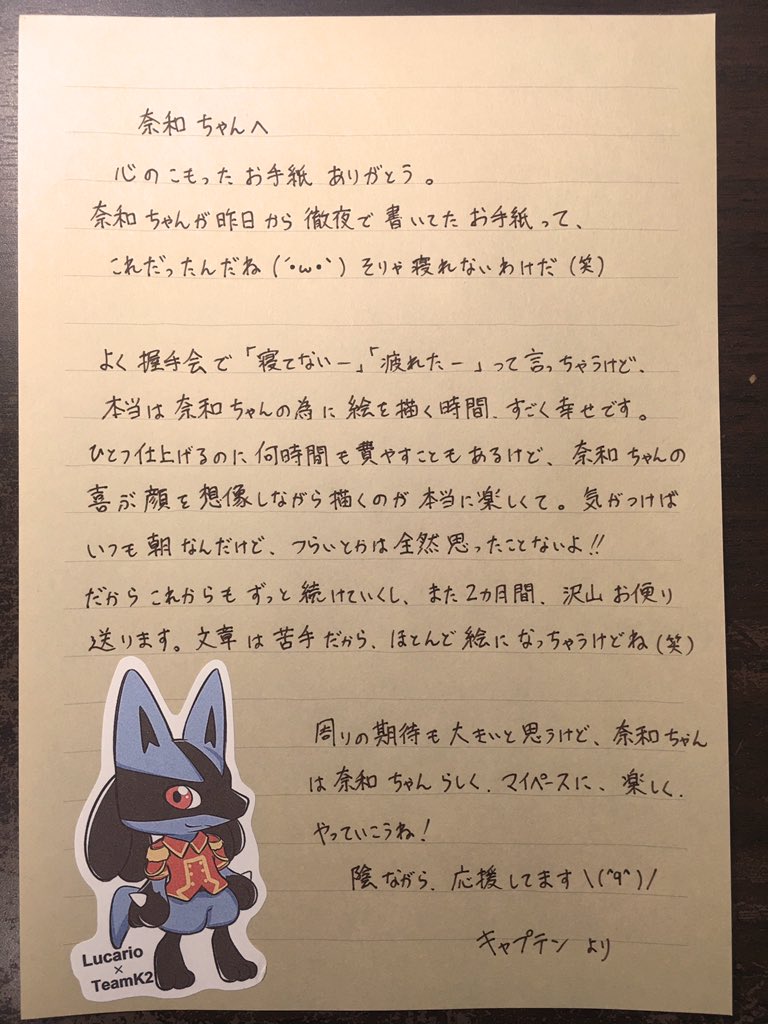 奈和ちゃんへ
心のこもったお手紙ありがとう。
奈和ちゃんが昨日から徹夜で書いてたお手紙って、
これだったんだね(´•ω•`)そりゃ寝れないわけだ(笑)
よく握手会で「寝てないー」「疲れたー」って言っちゃうけど、
本当は奈和ちゃんの為に絵を描く時間、すごく幸せです。
ひとつ仕上げるのに何時間も費やすこともあるけど、奈和ちゃんの
喜ぶ顔を想像しながら描くのが本当に楽しくて。気がつけば
いつも朝なんだけど、つらいとかは全然思ったことないよ!!
だからこれからもずっと続けていくし、また2ヵ月間、沢山お便り
送ります。文章は苦手だから、ほとんど絵になっちゃうけどね(笑)
周りの期待も大きいと思うけど、奈和ちゃん
は奈和ちゃんらしく、マイペースに、楽しく、
やっていこうね!
陰ながら、応援してます\(^q^)/
キャプテンより
Lucario
×
TeamK2